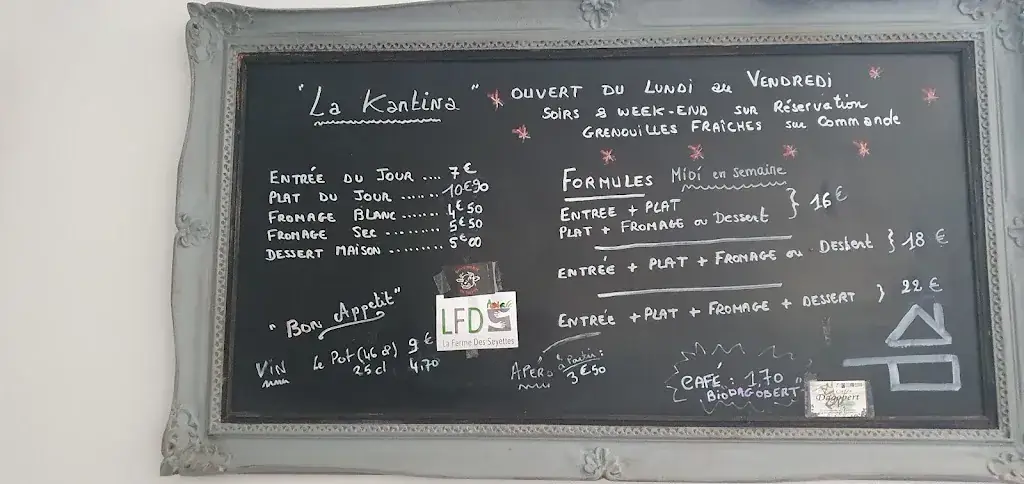 "La Kantina"
OUVERT DU LUNDI au VENDREDI
SOIRS & WEEK-END SUR Réservation
GRENOUILLES FRAÎCHES sur Commande
ENTRÉE DU JOUR .... 7€
PLAT DU JOUR ...... 10€90
FROMAGE BLANC ....... 4€50
FROMAGE SEC ......... 5€50
DESSERT MAISON ......... 5€00
FORMULES Midi en semaine
ENTREE + PLAT
PLAT + FROMAGE ou Dessert } 16€
ENTRÉE + PLAT + FROMAGE ou Dessert } 18 €
ENTRÉE + PLAT + FROMAGE + DESSERT } 22 €
"BON Appetit"
VIN le Pot (46 cl) 9€
25cl 4,70
LFD
La Ferme Des Seyettes
APERO à Partir :
3€50
CAFÉ : 1,70
"BIODAGOBERT"
Dagobert